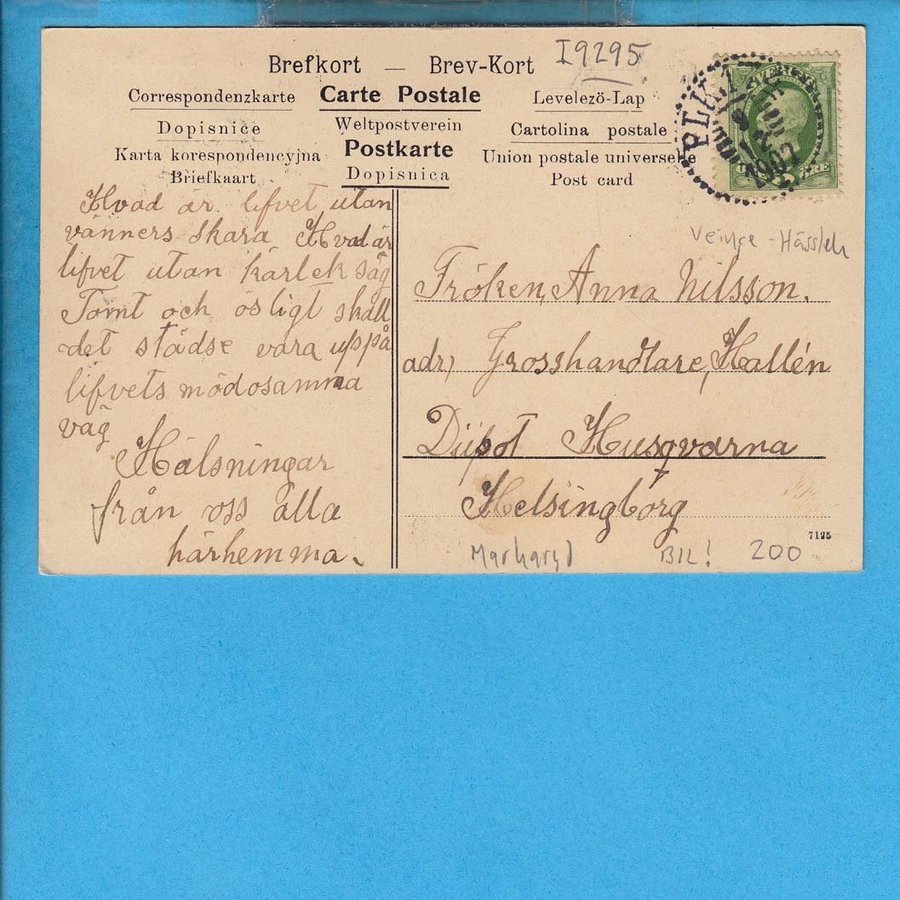 Brefkort — Brev-Kort
I9295
Correspondenzkarte Carte Postale Levelezö-Lap
Dopisnice Weltpostverein Cartolina postale
Karta korespondencyjna Postkarte Union postale universelle
Briefkaart Dopisnica Post card
SVERIGE
PLK
1907
ÖRE
Hvad är lifvet utan
vänners skara Hvad är
lifvet utan kärlek säg
Tomt och ösligt skall
det städse vara uppå
lifvets mödosamma
väg
Hälsningar
från oss alla
härhemma.
Veinge - Hässleh
Fröken, Anna Nilsson.
adr, Grosshandlare, Hallén
Dipot Husqvarna
Helsingborg
7125
Markaryd BIL! 200